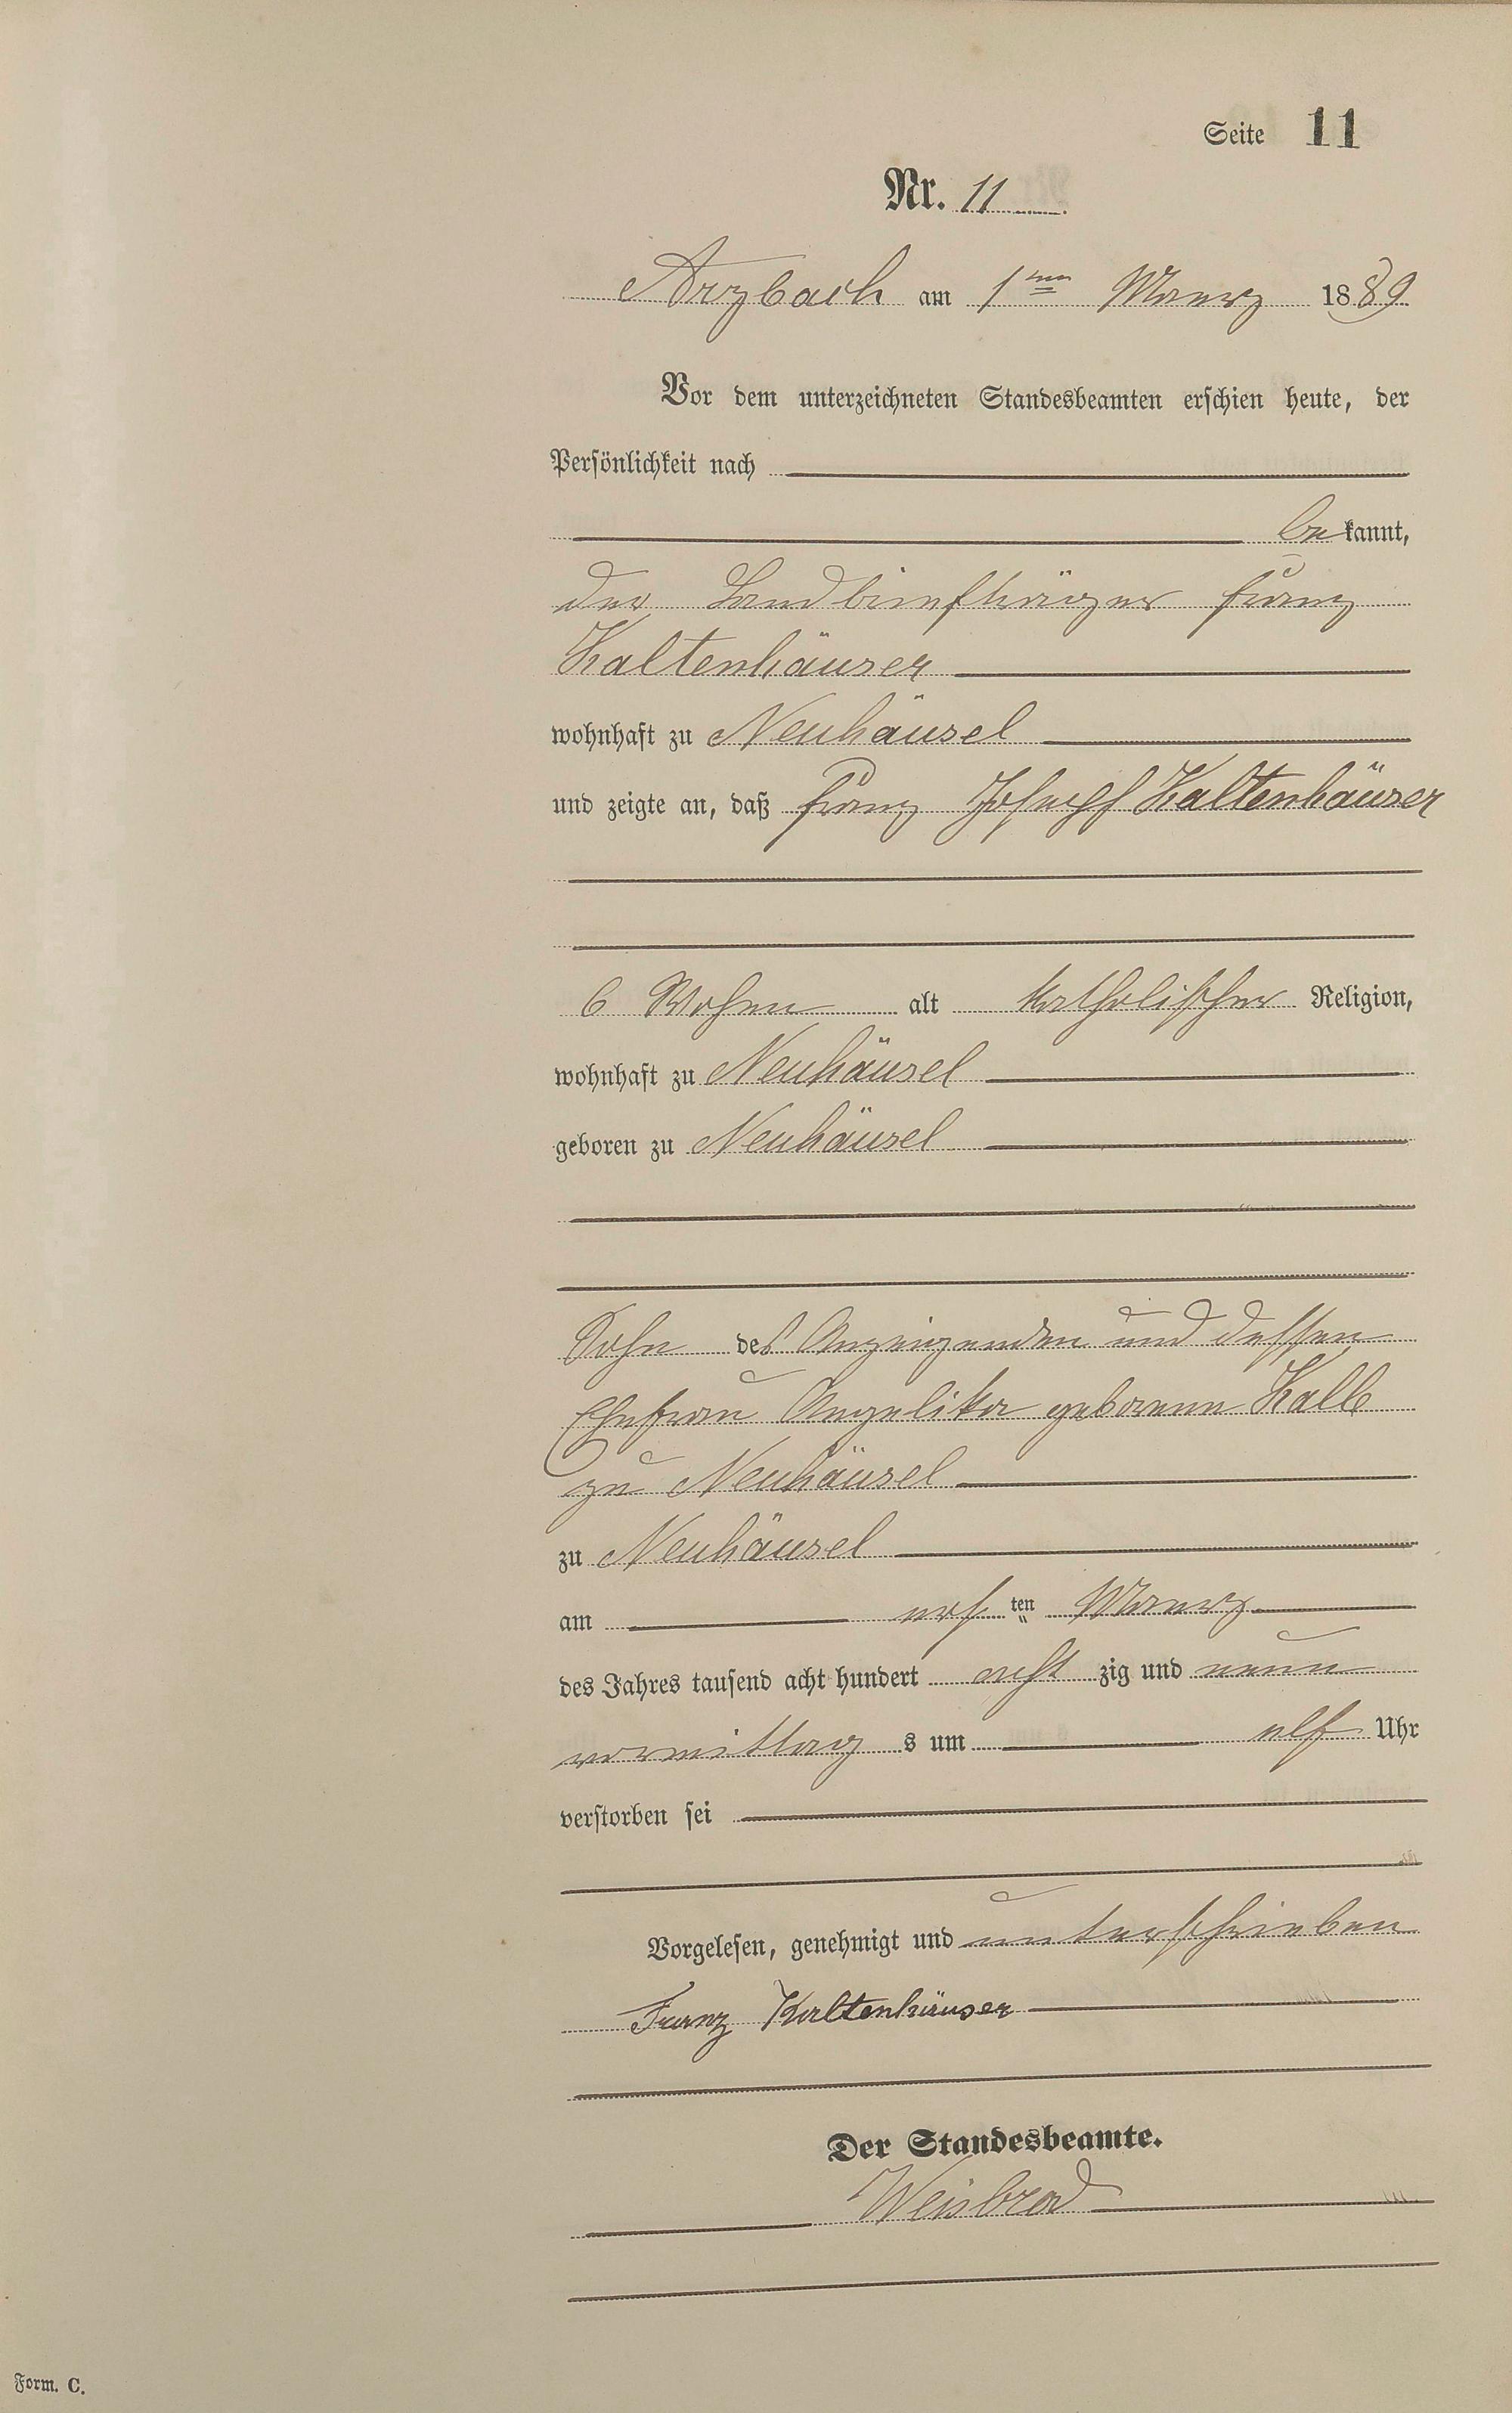 Seite 11
Nr. 11
Arzbach am 1ten Maerz 1889
Vor dem unterzeichneten Standesbeamten erschien heute, der
Persönlichkeit nach
bekannt,
der Landbriefträger Franz
Kaltenhäuser
wohnhaft zu Neuhäusel
und zeigte an, daß Franz Joseph Kaltenhäuser
6 Wochen alt katholischer Religion,
wohnhaft zu Neuhäusel
geboren zu Neuhäusel
Sohn des Anzeigenden und dessen
Ehefrau Angelika geborene Kalb
zu Neuhäusel
zu Neuhäusel
am ersten Maerz
des Jahres tausend acht hundert acht zig und neun
vormittag s um elf Uhr
verstorben sei
Vorgelesen, genehmigt und unterschrieben
Franz Kaltenhäuser
Der Standesbeamte.
Weisbrod
Form. C.